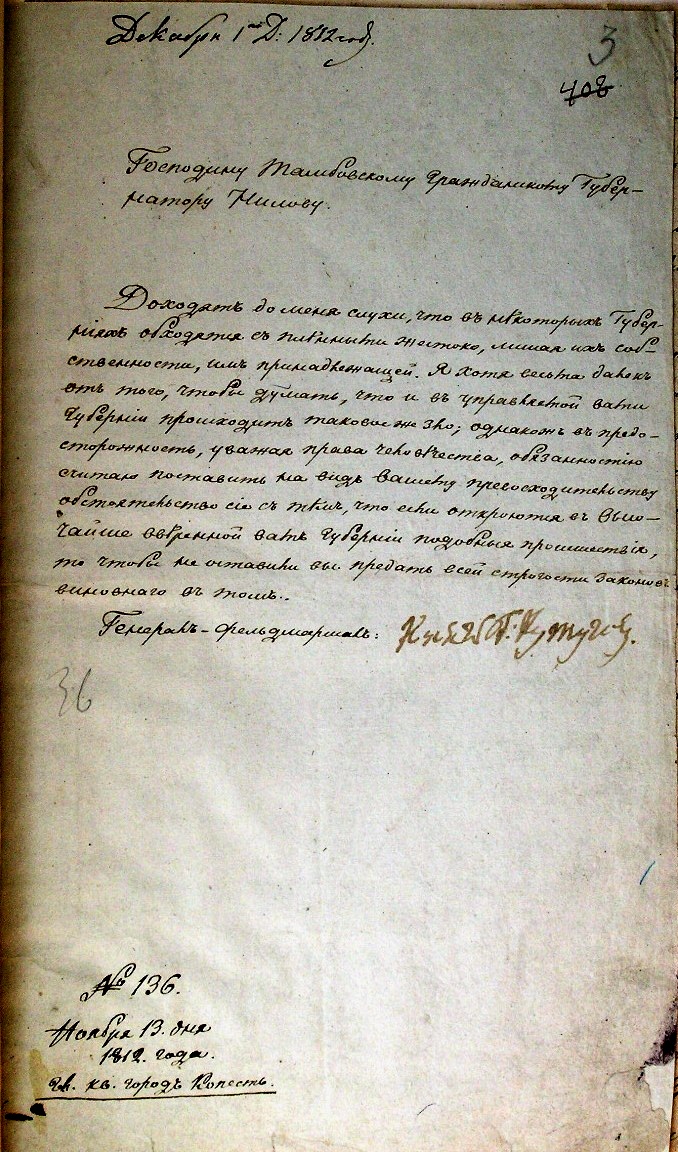 Декабря 1го Д: 1812 год.
3
408
Господину Тамбовскому Гражданскому Губер-
натору Нилову.
Доходятъ до меня слухи, что въ нѣкоторыхъ Губер-
нiяхъ обходятся съ плѣнными жестоко, лишая ихъ соб-
ственности, имъ принадлежащей. Я хотя весьма далекъ
отъ того, чтобы думать, что и въ управляемой вами
Губернiи происходитъ таковое же зло; однакожъ въ предо-
сторожность, уважая права человѣчества, обязанностiю
считаю поставить на видъ вашему превосходительству
обстоятельство сiе съ тѣмъ, что если откроются въ Высо-
чайше ввѣренной вамъ Губернiи подобныя происшествiя,
то чтобы не оставили вы предать всей строгости законовъ
виновнаго въ томъ..
Генералъ-фельдмаршалъ: Князь Г. Кутузовъ.
36
№ 136.
Ноября 13. дня
1812. года.
Гл. кв. городъ Копесть.